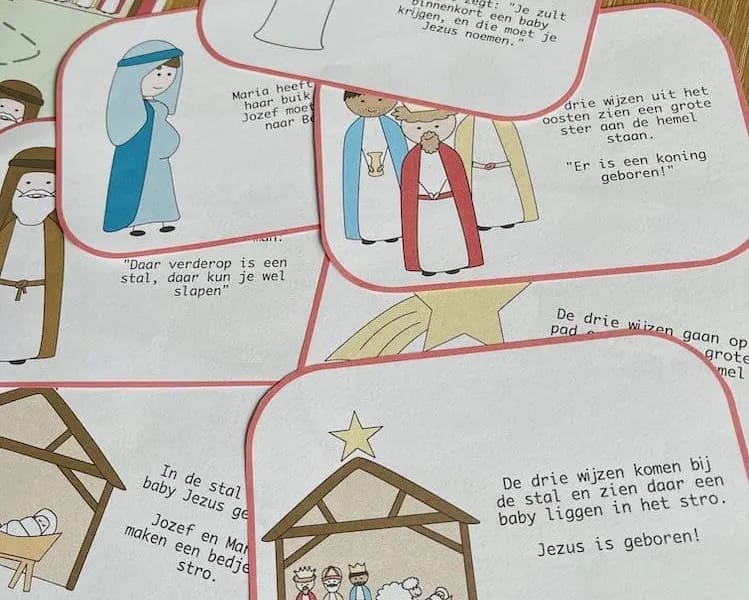 zegt: "Je zult
binnenkort een baby
krijgen, en die moet je
Jezus noemen."
Maria heeft
haar buik
Jozef moet
naar
drie wijzen uit het
oosten zien een grote
ster aan de hemel
staan.
"Er is een koning
geboren!"
"Daar verderop is een
stal, daar kun je wel
slapen"
De drie wijzen gaan op
pad
grote
In de stal
baby Jezus
Jozef en
maken een bedje
stro.
De drie wijzen komen bij
de stal en zien daar een
baby liggen in het stro.
Jezus is geboren!